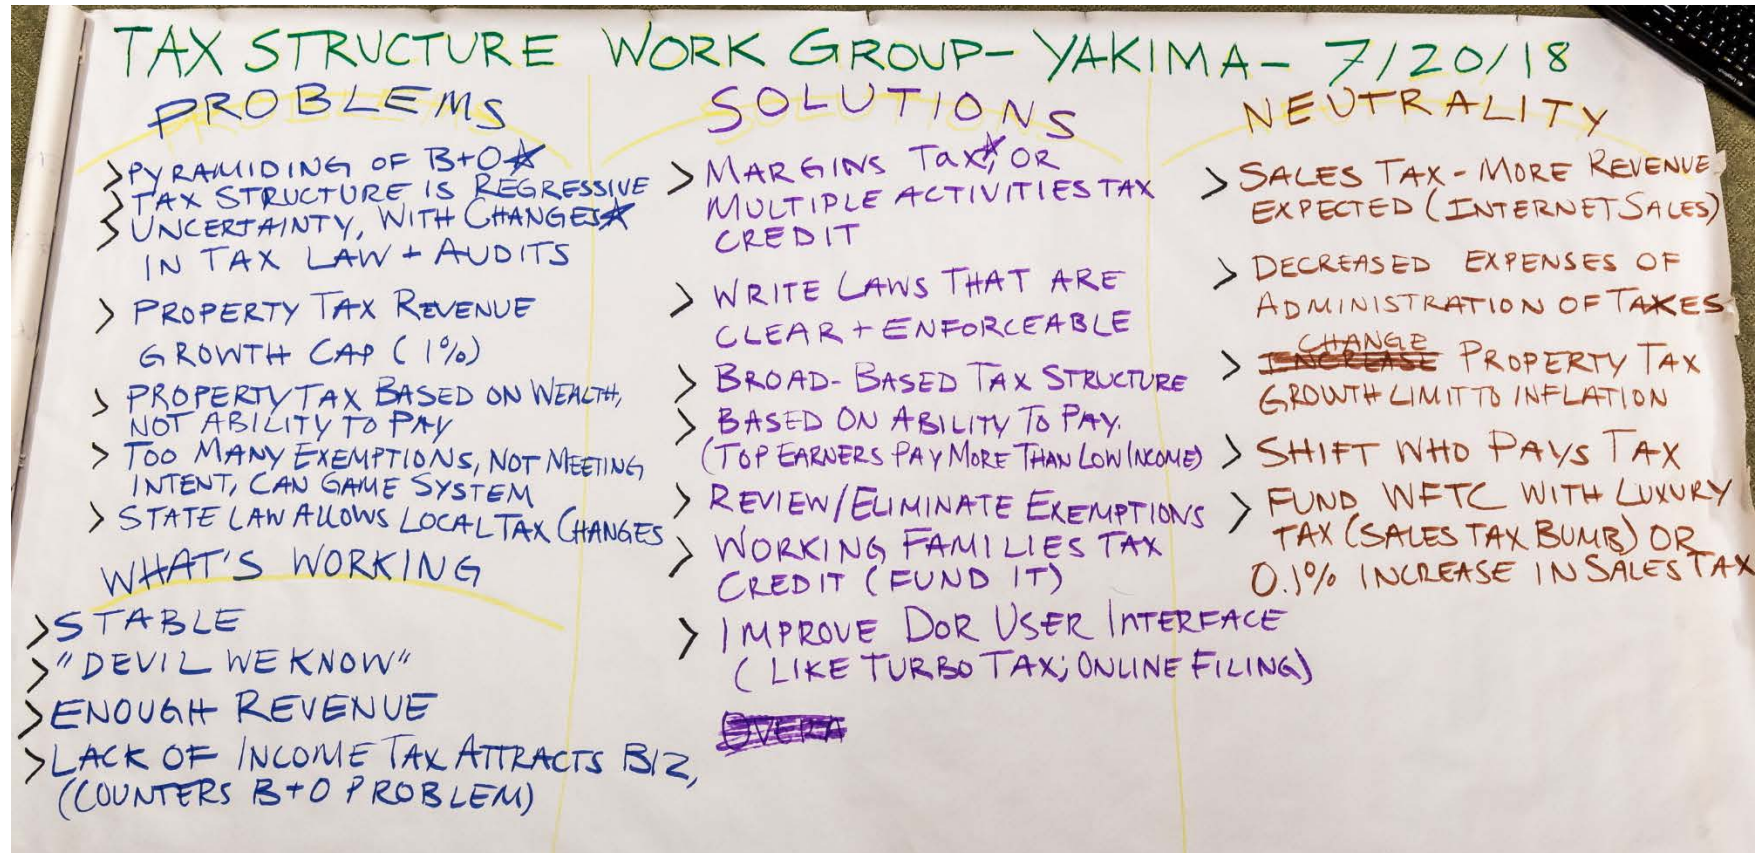 TAX STRUCTURE WORK GROUP- YAKIMA- 7/20/18
PROBLEMS
>PYRAMIDING OF B+O☆
>TAX STRUCTURE IS REGRESSIVE
>UNCERTAINTY, WITH CHANGES☆
IN TAX LAW + AUDITS
> PROPERTY TAX REVENUE
GROWTH CAP (1%)
> PROPERTY TAX BASED ON WEALTH,
NOT ABILITY TO PAY
> TOO MANY EXEMPTIONS, NOT MEETING
INTENT, CAN GAME SYSTEM
> STATE LAW ALLOWS LOCAL TAX CHANGES
WHAT'S WORKING
>STABLE
>"DEVIL WE KNOW"
>ENOUGH REVENUE
>LACK OF INCOME TAX ATTRACTS BIZ,
(COUNTERS B+O PROBLEM)
SOLUTIONS
> MARGINS TAX☆, OR
MULTIPLE ACTIVITIES TAX
CREDIT
> WRITE LAWS THAT ARE
CLEAR + ENFORCEABLE
> BROAD-BASED TAX STRUCTURE
> BASED ON ABILITY TO PAY.
(TOP EARNERS PAY MORE THAN LOW INCOME)
> REVIEW/ELIMINATE EXEMPTIONS
> WORKING FAMILIES TAX
CREDIT (FUND IT)
> IMPROVE DOR USER INTERFACE
(LIKE TURBO TAX; ONLINE FILING)
OVERA
NEUTRALITY
> SALES TAX - MORE REVENUE
EXPECTED (INTERNET SALES)
> DECREASED EXPENSES OF
ADMINISTRATION OF TAXES
CHANGE
> INCREASE PROPERTY TAX
GROWTH LIMIT TO INFLATION
> SHIFT WHO PAYS TAX
> FUND WFTC WITH LUXURY
TAX (SALES TAX BUMB) OR
0.1% INCREASE IN SALES TAX